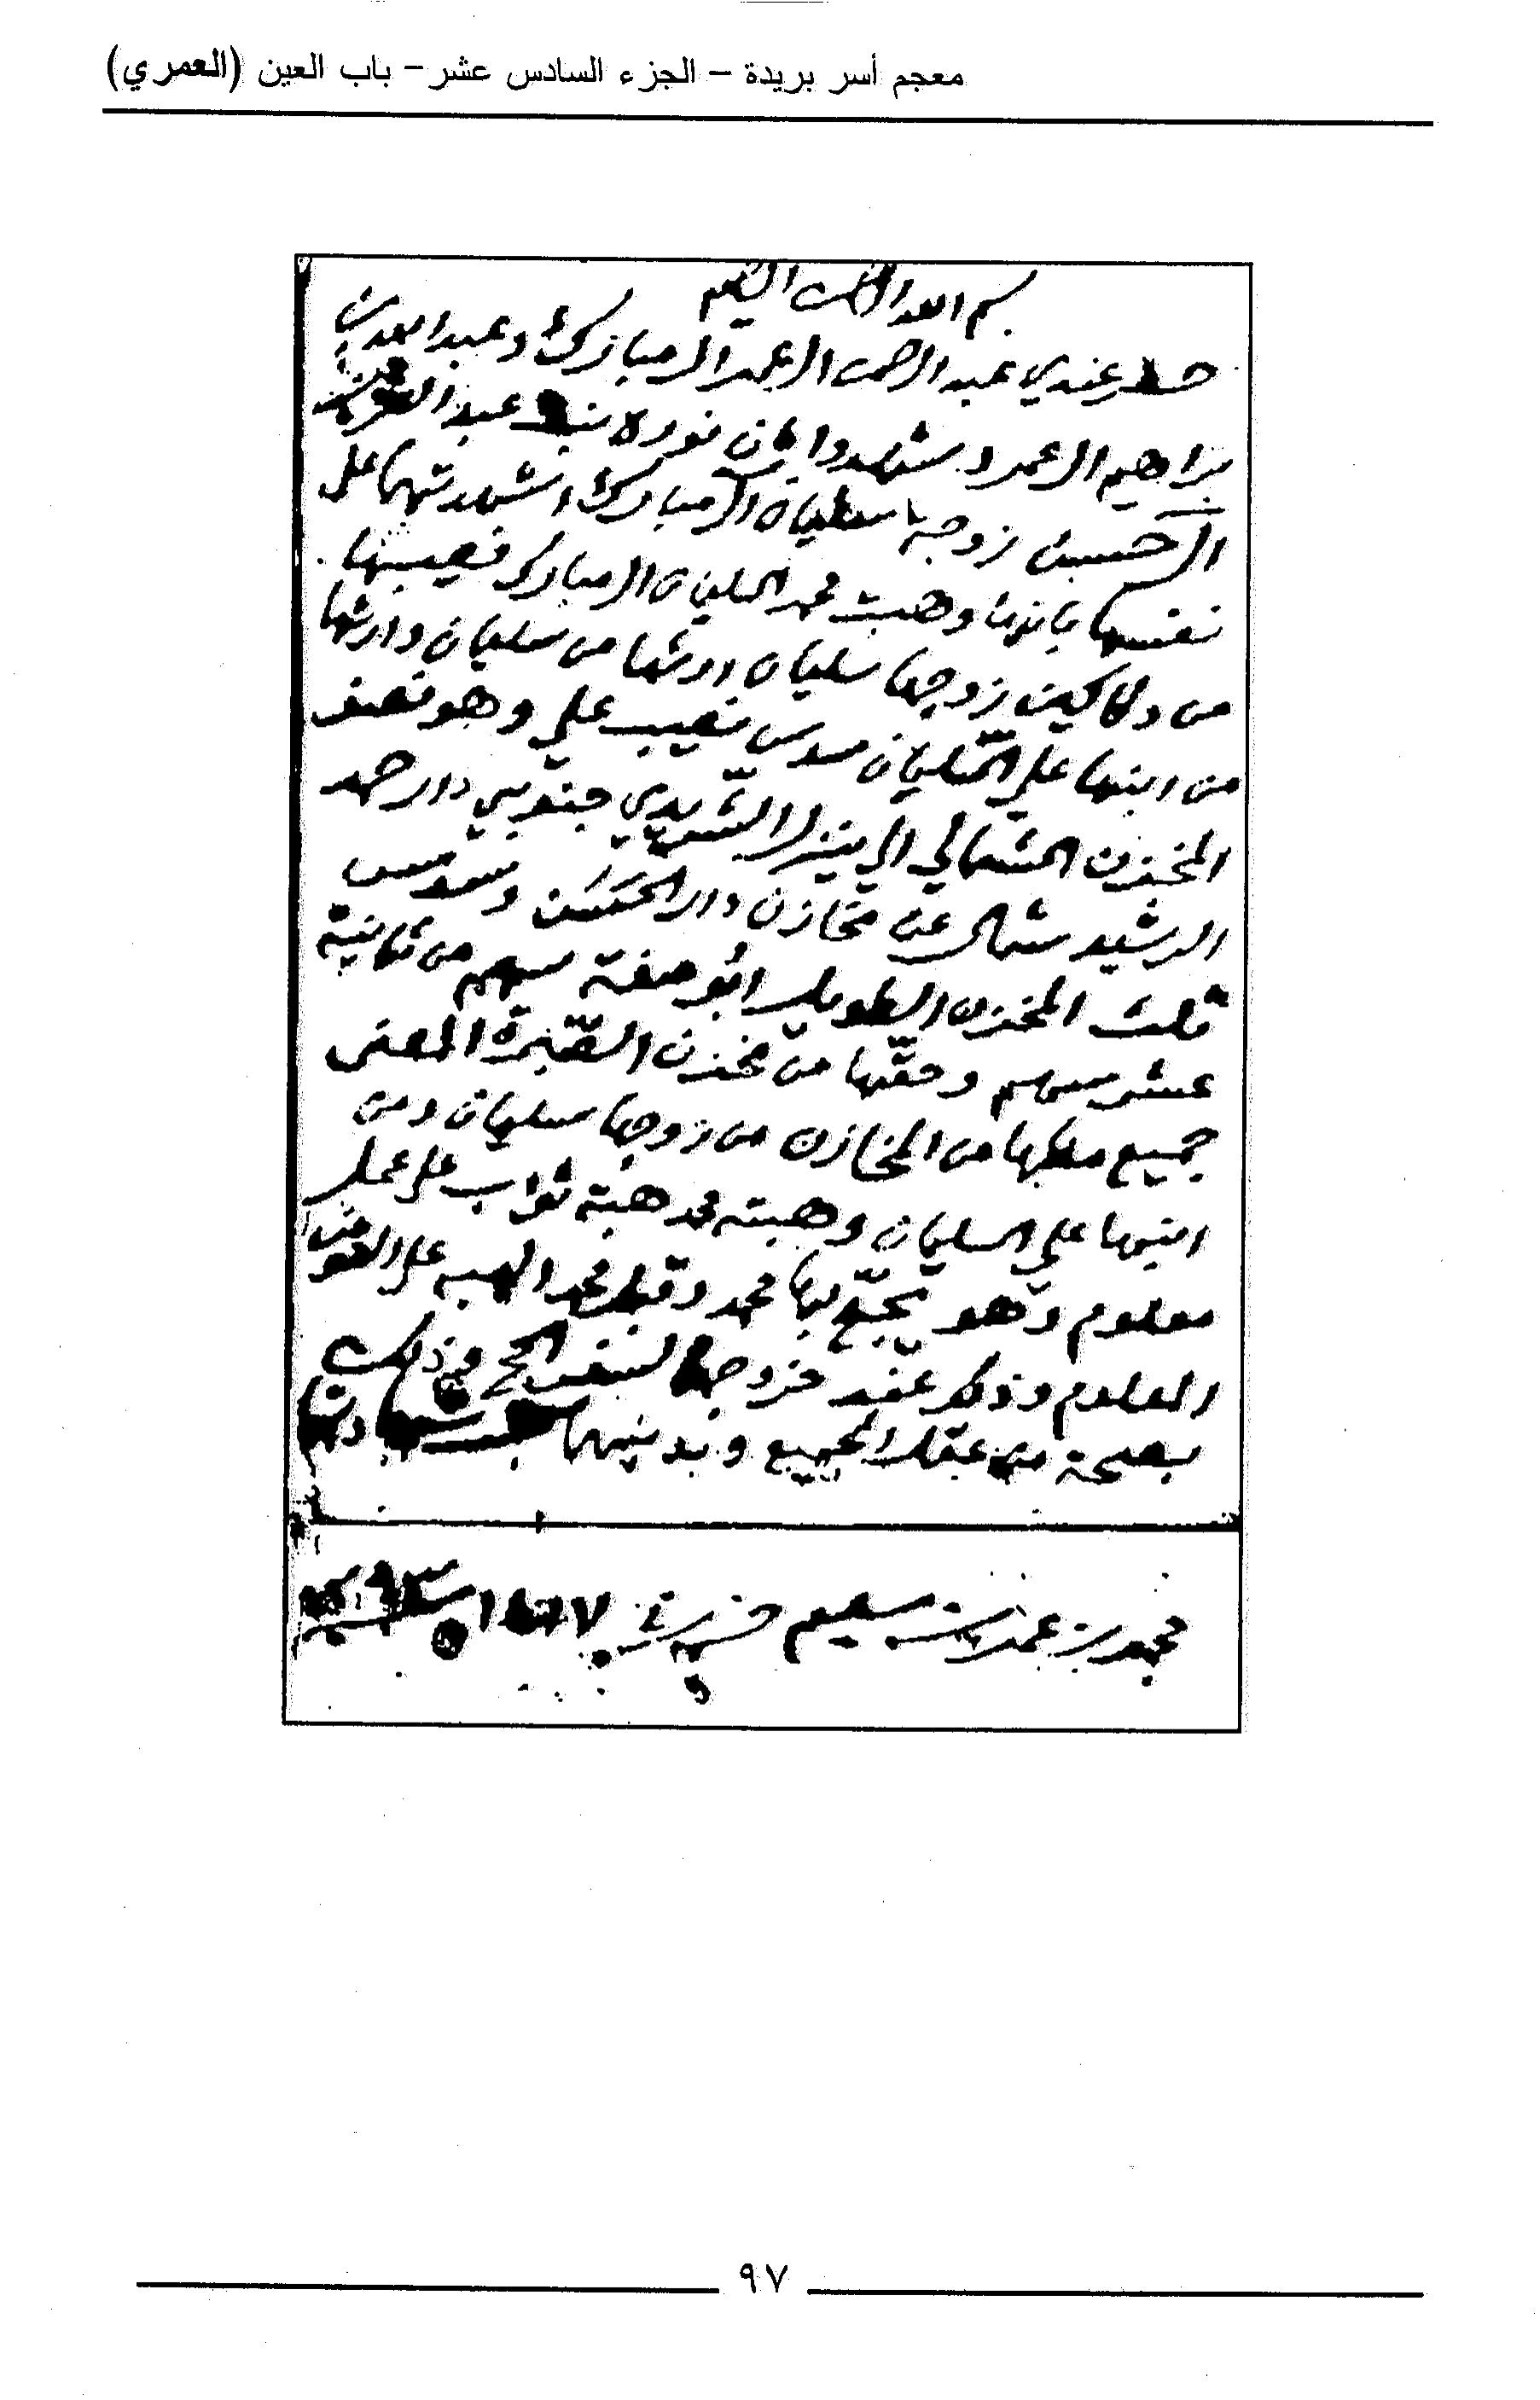 معجم أسر بريدة – الجزء السادس عشر – باب العين (العمري)
بسم الله الرحمن الرحيم
حضر عندي عبد الرحمن المبارك وعبد الله بن
براهيم العمر وشهدوا بان نوره بنت عبد العزيز
الحسين زوجة سليمان المبارك اشهدتهما على
نفسها بانها وهبت محمد السليمان المبارك نصيبها
من دكاكين زوجها سليمان ارثها من سليمان وارثها
من ابنها علي السليمان سدس نصيب علي وهو نصف
المخزن الشمالي الشريدي جنوبي دار حمد
الرشيد شمال عن مخازن دار وسدس
ثلث المخزن الطويل ابو صفة سهم من ثمانية
عشر سهم وحقها من مخزن الصّنيرة المعنى
جميع ملكها من المخازن من زوجها سليمان ومن
ابنها علي السليمان وهبته محمد هبة ثواب على عمل
معلوم وهو يحجّ بها محمد وقبل محمد الهبه على العوض
المعلوم وذكر عند خروجها لسفر الحج وذلك
بصحة من عقل الجميع وبدينهما
محمد بن سليم
٩٧